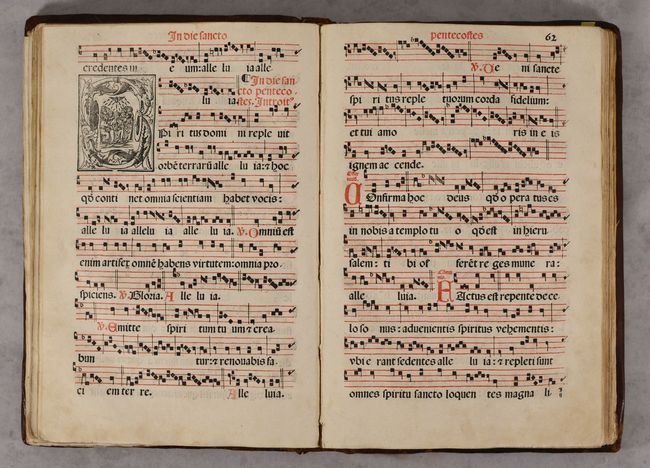 In die sancto
credentes in e um: alle lu ia alle
lu ia.
¶In die san
cto penteco
stes. Introit⁹
Pi ri tus domi ni reple uit
orbē terrarū alle lu ia: ⁊ hoc
qḋ conti net omnia scientiam habet vocis:
alle lu ia allelu ia alle lu ia. V. Omniū est
enim artifex omnē habens virtutem: omnia pro
spiciens. V. Gloria. Alle lu ia.
V. Emitte spiri tum tu um ⁊ crea
bun tur: ⁊ renouabis fa
ci em ter re. Alle luia.
pentecostes 62
V. Ve ni sancte
spi ri tus reple tuorum corda fidelium:
et tui amo ris in e is
ignem ac cende.
COnfirma hoc deus qḋ o pera tus es
in nobis a templo tu o qḋ est in hieru
salem: ti bi of ferēt re ges mune ra:
alle luia. FActus est repente de ce
lo so nus: aduenientis spiritus vehementis:
vbi e rant sedentes alle lu ia: ⁊ repleti sunt
omnes spiritu sancto loquen tes magna li